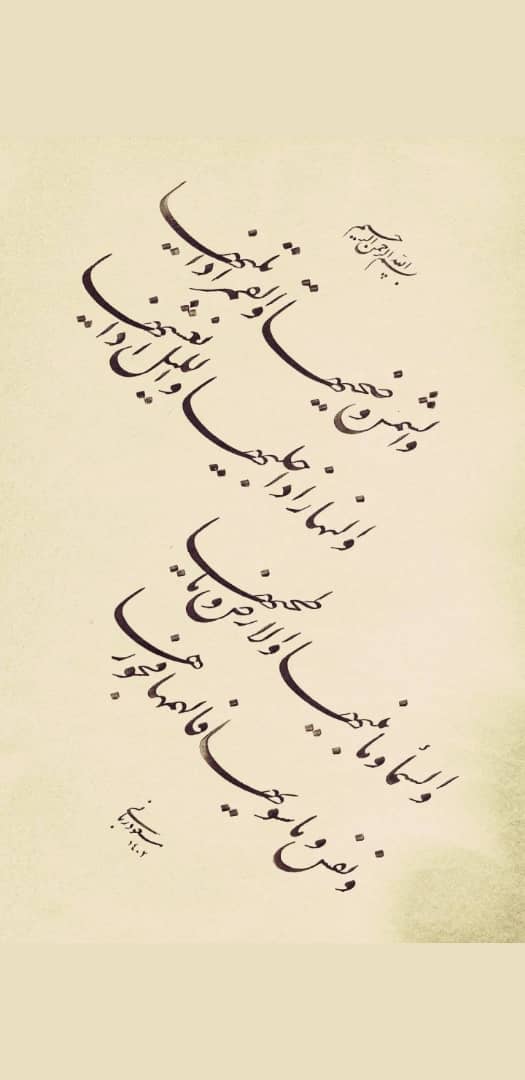 بسم الله الرحمن الرحیم
والشمس وضحیها والقمر اذا تلیها
والنهار اذا جلیها واللیل اذا یغشیها
والسماء وما بنیها والارض وما طحیها
ونفس وما سویها فالهمها فجورها
۱۴۰۲